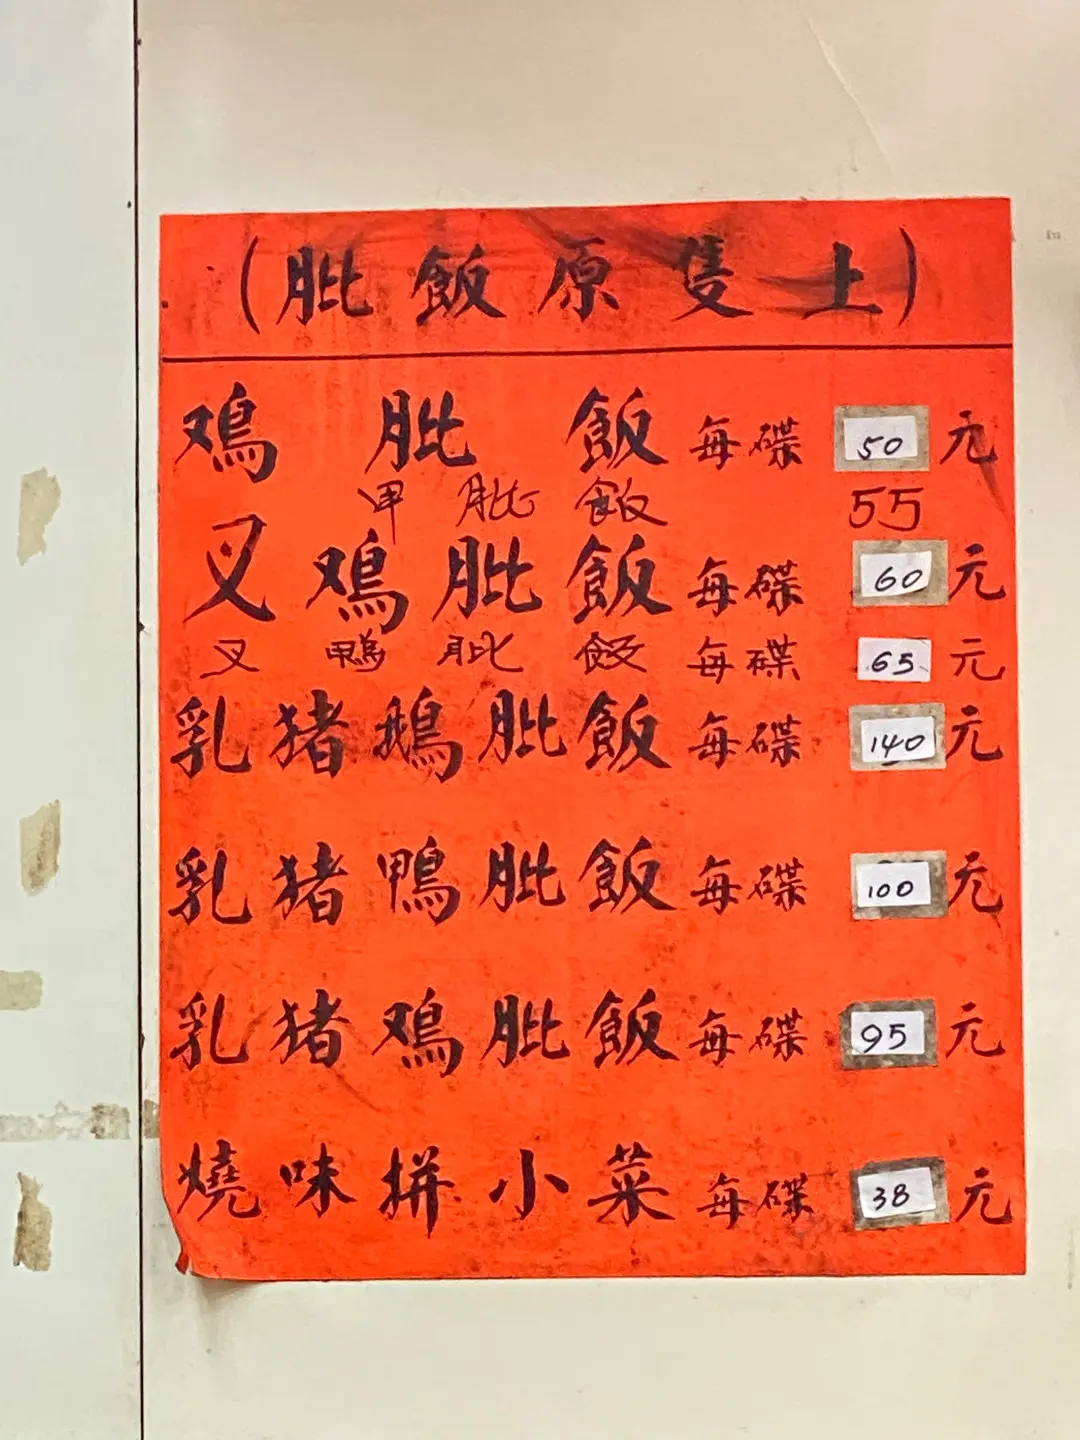 (肶飯原隻上)
鸡肶飯每碟50元
甲肶飯55
叉鸡肶飯每碟60元
叉鴨肶飯每碟65元
乳猪鵝肶飯每碟140元
乳猪鴨肶飯每碟100元
乳猪鸡肶飯每碟95元
燒味拼小菜每碟38元